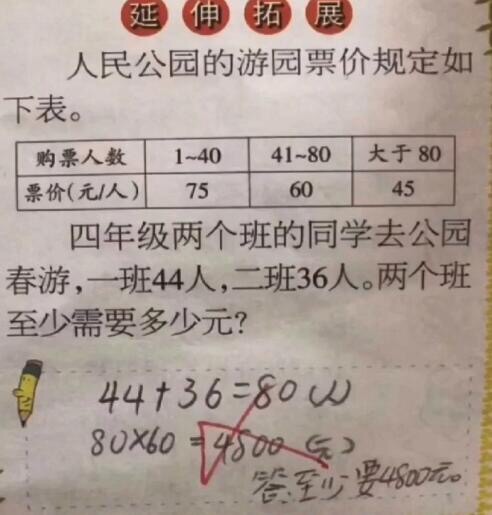 延伸拓展
人民公园的游园票价规定如
下表。
购票人数 1~40 41~80 大于 80
票价(元/人) 75 60 45
四年级两个班的同学去公园
春游,一班44人,二班36人。两个班
至少需要多少元?
44+36=80(人)
80×60=4800(元)
答:至少要4800元。